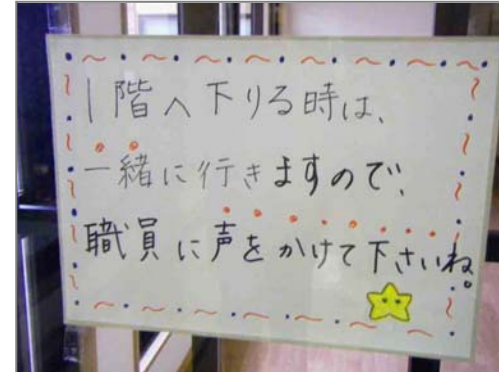 1階へ下りる時は、
一緒に行きますので、
職員に声をかけて下さいね。